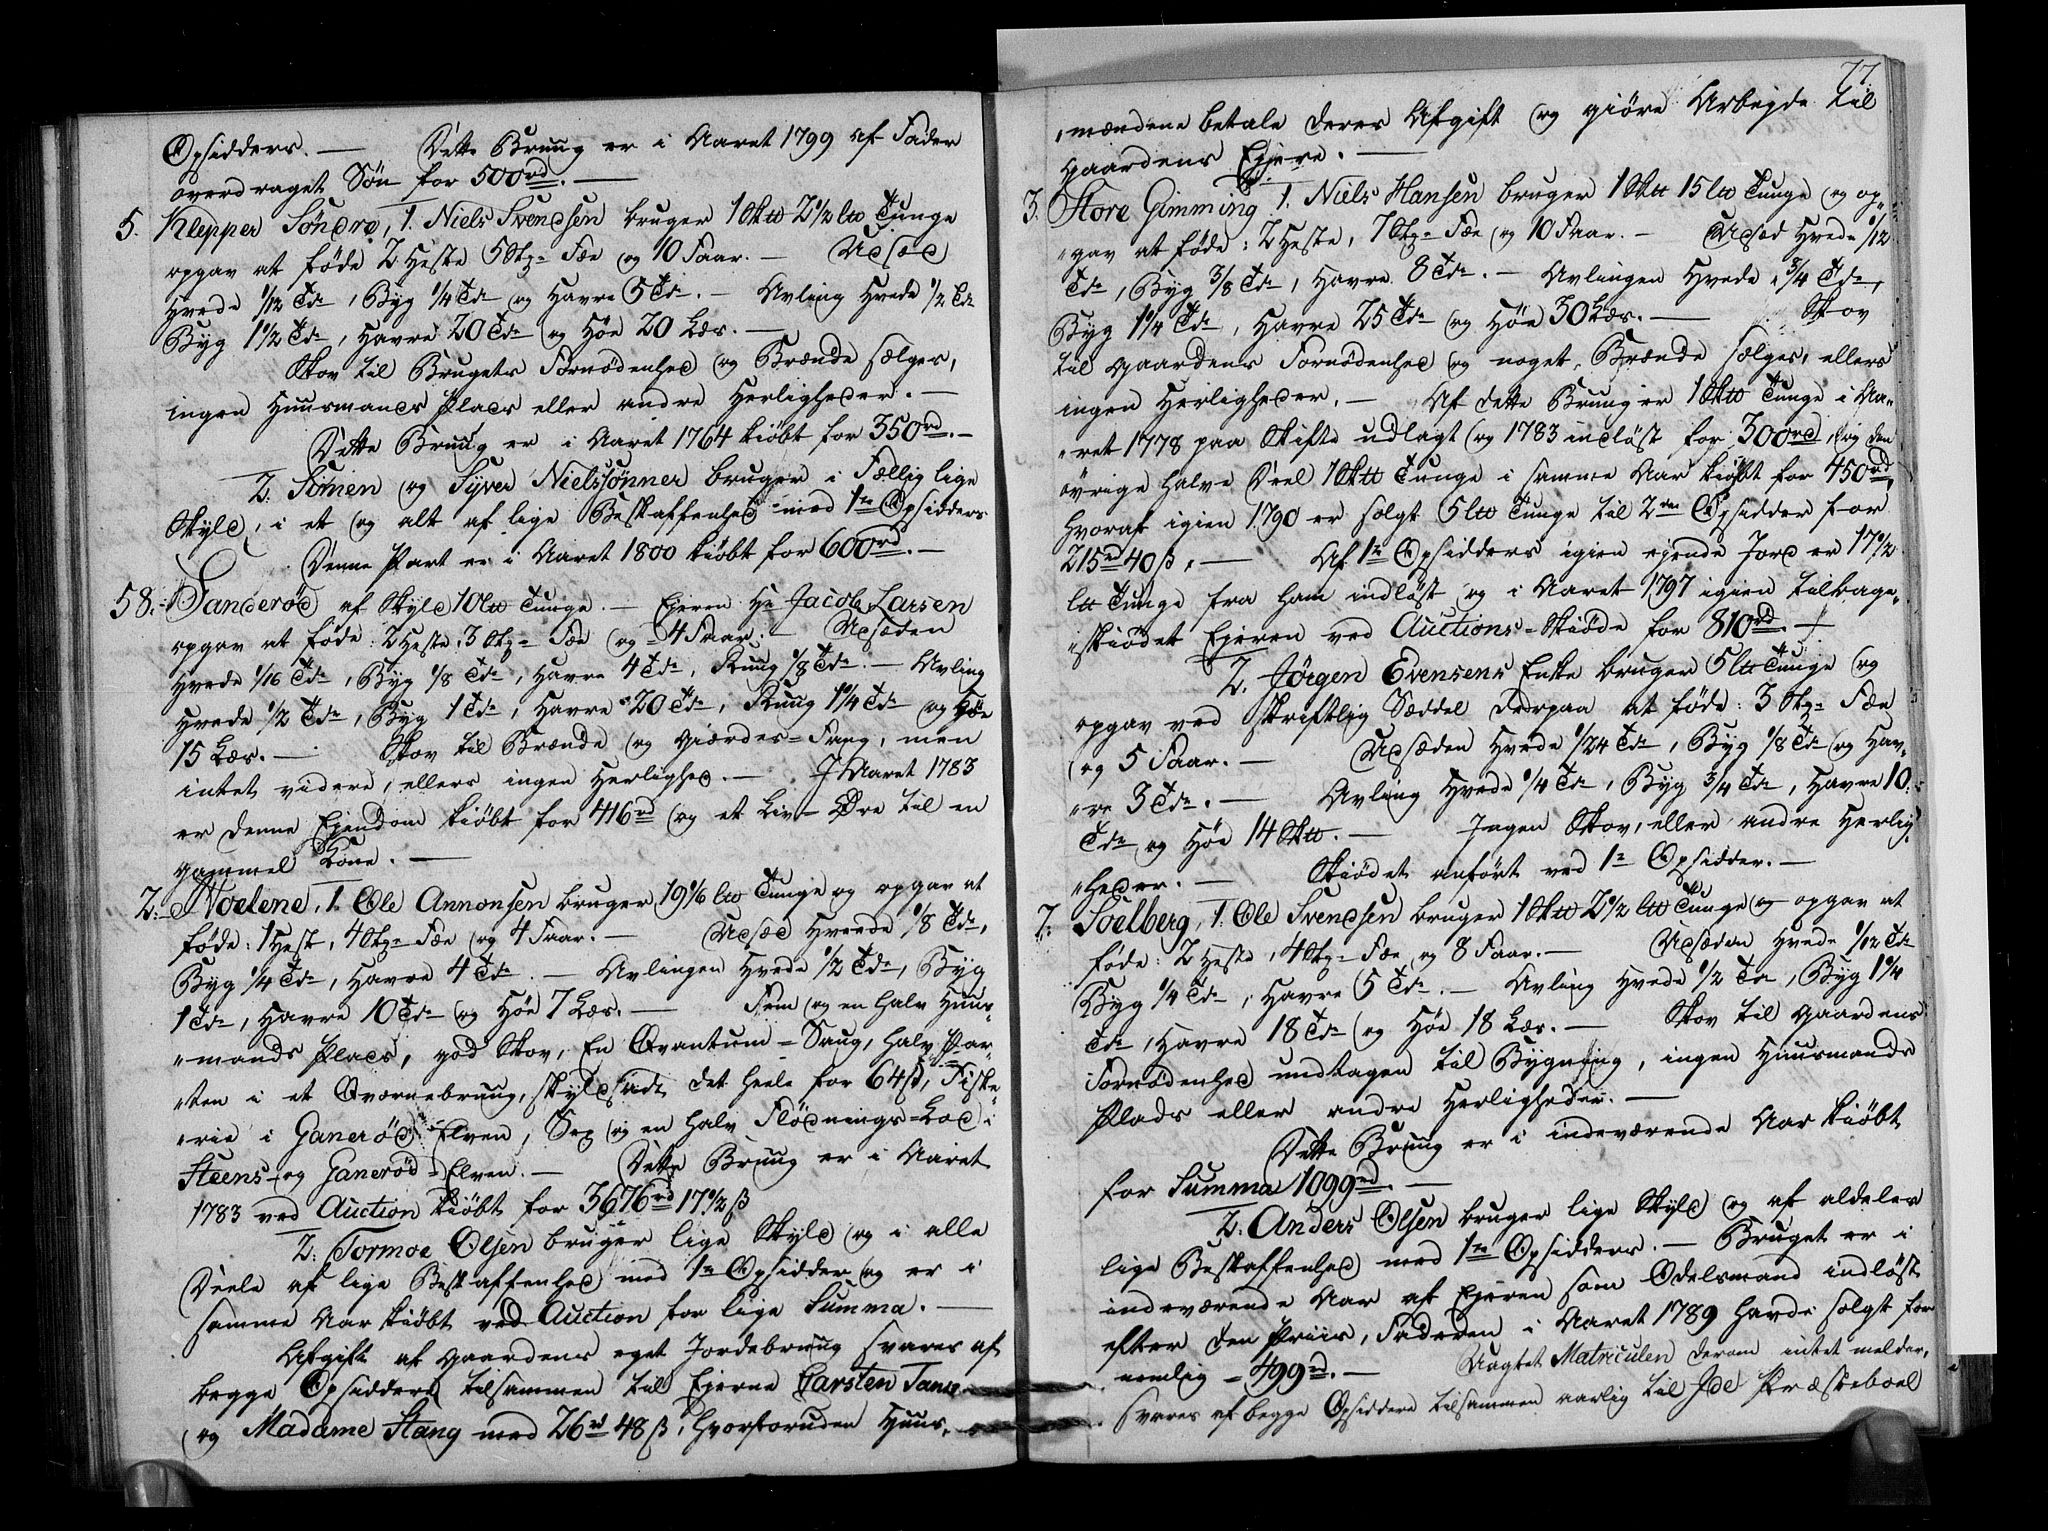 Opsidders. — Dette Bruug er i Aaret 1799 af Fader
overdraget Søn for 500rd. —
5. Klepper Søndre, 1. Niels Svendsen bruger 1 Sktt 2 1/2 ltt Tunge
opgav at føde 2 Heste 5 Stz= Fæe og 10 Faar. — Udsæd
Hvede 1/12 Tdr, Byg 1/4 Tdr og Havre 5 Tdr. — Avling Hvede 1/2 Td
Byg 1 1/2 Tdr, Havre 20 Tdr og Høe 20 Læs. —
Skov til Brugets Fornødenhed og Brænde sælges,
ingen Huusmands Plads eller andre Herligheder. —
Dette Bruug er i Aaret 1764 kiøbt for 350rd. —
2. Simen og Syver Nielssønner bruger i Fællig lige
Skyld, i et og alt af lige Beskaffenhed med 1te Opsidders
Denne Part er i Aaret 1800 kiøbt for 600rd. —
58. Sanderød af Skyld 10 ltt Tunge. — Ejeren Hr Jacob Larsen
opgav at føde: 2 Heste, 3 Stz= Fæe og 4 Faar. — Udsæden
Hvede 1/16 Tdr, Byg 1/8 Tdr, Havre 4 Tdr, Ruug 1/8 Tdr. — Avling
Hvede 1/2 Tdr, Byg 1 Tdr, Havre 20 Tdr, Ruug 1 1/4 Tdr og Høe
15 Læs. — Skov til Brænde og Giærdes=Fang, men
intet videre, ellers ingen Herlighed. — I Aaret 1783
er denne Ejendom kiøbt for 416rd og et Liv=Øre til en
gammel Kone. —
2. Noelene, 1. Ole Annonsen bruger 19 1/6 ltt Tunge og opgav at
føde: 1 Hest, 4 Stz= Fæe og 4 Faar. — Udsæd Hveede 1/8 Tdr,
Byg 1/4 Tdr, Havre 4 Tdr. — Avlingen Hvede 1/2 Tdr, Byg
1 Tdr, Havre 10 Tdr og Høe 7 Læs. — Fem og en halv Huus-
„mands Plads, god Skov, En Qvantum=Saug, halv Par-
„ten i et Qværnebruug, skyldsadt det heele for 64 ß, Fiske-
„rie i Ganerød Elven, Sex og en halv Flødnings=Lod i
Steens= og Ganerød=Elven. — Dette Bruug er i Aaret
1783 ved Auction kiøbt for 3676rd 17 1/2 ß
2. Tormoe Olsen bruger lige Skyld og i alle
Deele af lige Beskaffenhed med 1te Opsidder og er i
samme Aar kiøbt ved Auction for lige Summa. —
Afgift af Gaardens eget Jordebruug svares af
begge Opsiddere tilsammen til Ejerne Carsten Tank
og Madame Stang med 26rd 48 ß, hvorforuden Huus-
77.
„mændene betale deres Afgift og giöre Arbeyde til
Gaardens Ejere. —
3. Store Gimming 1. Niels Hansen bruger 1 Sktt 15 ltt Tunge og op-
„gav at føde: 2 Heste, 7 Stz= Fæe og 10 Faar. — Udsæd Hvede 1/12
Tdr, Byg 3/8 Tdr, Havre 8 Tdr. — Avlingen Hvede 3/4 Tdr,
Byg 1 1/4 Tdr, Havre 25 Tdr og Høe 30 Læs. — Skov
til Gaardens Fornødenhed og noget Brænde sælges, ellers
ingen Herligheder. — Af dette Bruug er 1 Sktt Tunge i Aa-
„ret 1778 paa Skifte udlagt og 1783 indløst for 300rd, og den
övrige halve Deel 1 Sktt Tunge i samme Aar kiøbt for 450rd,
hvoraf igien 1790 er solgt 5 ltt Tunge til 2den Opsidder for
215rd 40 ß. — Af 1te Opsidders igien ejende Jord er 17 1/2
ltt Tunge fra ham indløst og i Aaret 1797 igien tilbage-
„skiödet Ejeren ved Auctions=Skiöde for 810rd. —
2. Jørgen Evensens Enke bruger 5 ltt Tunge og
opgav ved skriftlig Sæddel derpaa at føde: 3 Stz= Fæe
og 5 Faar. — Udsæden Hvede 1/24 Tdr, Byg 1/8 Tdr og Hav-
„re 3 Tdr. — Avling Hvede 1/4 Tdr, Byg 3/4 Tdr, Havre 10
Tdr og Høe 14 Sktt. — Ingen Skov, eller andre Herlig-
„heder. — Skiödet anfört ved 1te Opsidder. —
7. Soelberg, 1. Ole Svendsen bruger 1 Sktt 2 1/2 ltt Tunge og opgav at
føde: 2 Heste, 4 Stz= Fæe og 8 Faar. — Udsæden Hvede 1/12 Tdr
Byg 1/4 Tdr, Havre 5 Tdr. — Avling Hvede 1/2 Td, Byg 1 1/4
Tdr, Havre 18 Tdr og Høe 18 Læs. — Skov til Gaardens
Fornødenhed undtagen til Bygning, ingen Huusmands
Plads eller andre Herligheder. —
Dette Bruug er i indeværende Aar kiöbt
for Summa 1099rd. —
2. Anders Olsen bruger lige Skyld og af aldeles
lige Beskaffenhed med 1te Opsidders. — Bruget er i
indeværende Aar af Ejeren som Odelsmand indløst
efter den Priis, Faderen i Aaret 1789 havde solgt for
nemlig 499rd. — Uagtet Matriculen derom intet melder,
svares af begge Opsiddere tilsammen aarlig til Ide Præsteboel